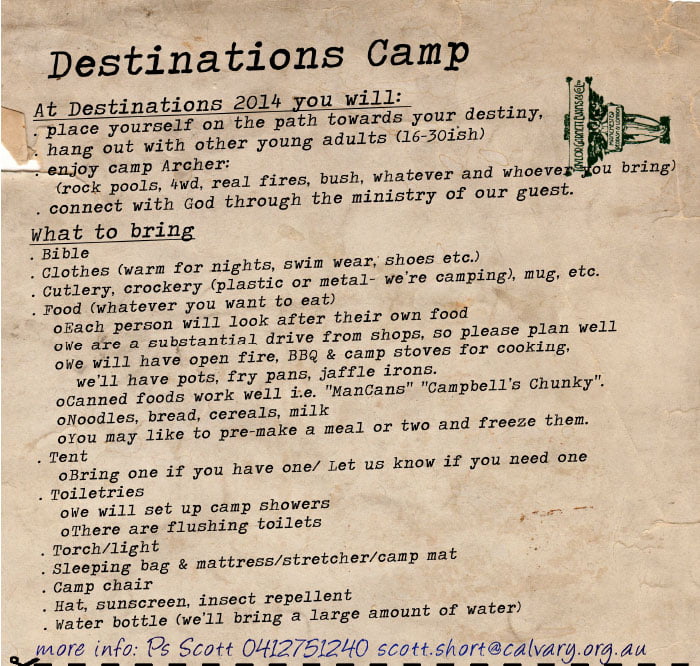 Destinations Camp
At Destinations 2014 you will:
. place yourself on the path towards your destiny,
. hang out with other young adults (16-30ish)
. enjoy camp Archer:
(rock pools, 4wd, real fires, bush, whatever and whoever you bring)
. connect with God through the ministry of our guest.
What to bring
. Bible
. Clothes (warm for nights, swim wear, shoes etc.)
. Cutlery, crockery (plastic or metal- we're camping), mug, etc.
. Food (whatever you want to eat)
oEach person will look after their own food
oWe are a substantial drive from shops, so please plan well
oWe will have open fire, BBQ & camp stoves for cooking,
we'll have pots, fry pans, jaffle irons.
oCanned foods work well i.e. "ManCans" "Campbell's Chunky".
oNoodles, bread, cereals, milk
oYou may like to pre-make a meal or two and freeze them.
. Tent
oBring one if you have one/ Let us know if you need one
. Toiletries
oWe will set up camp showers
oThere are flushing toilets
. Torch/light
. Sleeping bag & mattress/stretcher/camp mat
. Camp chair
. Hat, sunscreen, insect repellent
. Water bottle (we'll bring a large amount of water)
more info: Ps Scott 0412751240 scott.short@calvary.org.au